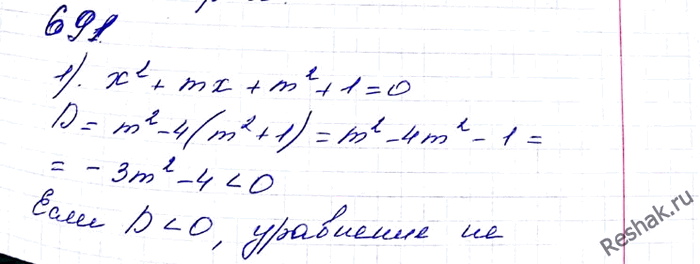 691
1). x² + mx + m² + 1 = 0
D = m² - 4(m² + 1) = m² - 4m² - 1 =
= - 3m² - 4 < 0
Если D < 0, уравнение не
Reshak.ru